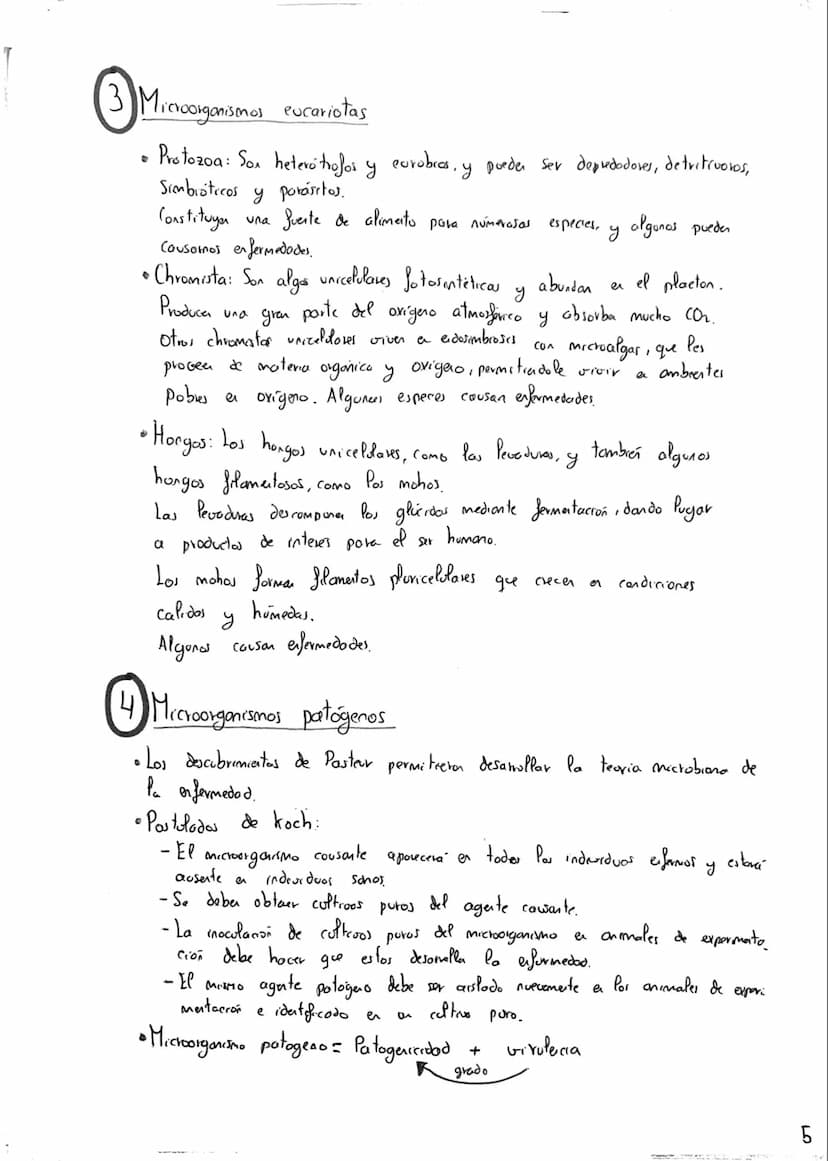 3 Microorganismos eucariotas
• Protozoa: Son heterótrofos y aerobios, y pueden ser depredadores, detritívoros,
Simbióticos y parásitos.
Constituyen una fuente de alimento para numerosas especies, y algunos pueden
causarnos enfermedades.
• Chromista: Son algas unicelulares fotosintéticas y abundan en el placton.
Producen una gran parte del oxígeno atmosférico y absorben mucho CO2.
Otros chromistas unicelulares viven en endosimbiosis con microalgas, que les
proveen de materia orgánica y oxígeno, permitiendole vivir en ambientes
Pobres en oxígeno. Algunas especies causan enfermedades.
• Hongos: Los hongos unicelulares, como las levaduras, y también algunos
hongos filamentosos, como los mohos.
Las levaduras descomponen los glúcidos mediante fermentación, dando lugar
a productos de interes para el ser humano.
Los mohos forman filamentos pluricelulares que crecen en condiciones
calidas y húmedas.
Algunos causan enfermedades.
4 Microorganismos patógenos
• Los descubrimientos de Pasteur permitieron desarrollar la teoría microbiana de
la enfermedad.
• Postulados de Koch:
- El microorganismo causante aparecerá en todos los individuos enfermos y estará
ausente en individuos sanos.
- Se deben obtener cultivos puros del agente causante.
- La inoculación de cultivos puros del microorganismo en animales de experimenta
ción debe hacer que estos desarrollen la enfermedad.
- El mismo agente patógeno debe ser aislado nuevamente en los animales de experi
mentación e identificado en un cultivo puro.
• Microorganismo patogeno = Patogenicidad + virulencia
grado
5